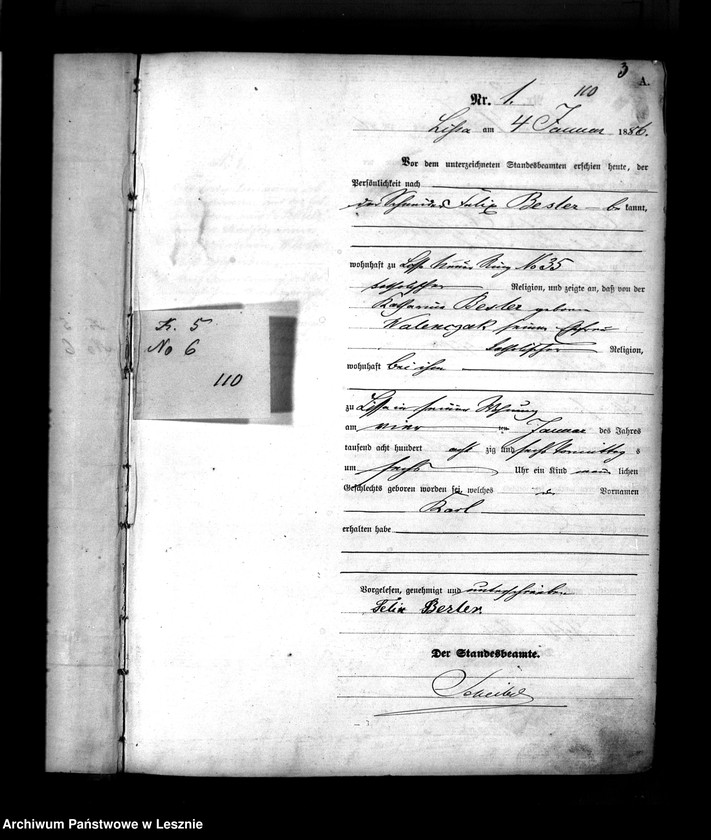 3
A.
110
Nr. 1.
Lissa am 4 Januar 1886.
Vor dem unterzeichneten Standesbeamten erschien heute, der
Persönlichkeit nach
der Schneider Felix Bester bekannt,
wohnhaft zu Lissa Neuer Ring No 35
katholischer Religion, und zeigte an, daß von der
Katharina Bester geborne
Walenczak seiner Ehefrau
katholischer Religion,
wohnhaft bei ihm
zu Lissa in seiner Wohnung
am vier ten Januar des Jahres
tausend acht hundert acht zig und sechs Vormittag s
um sechs Uhr ein Kind männ lichen
Geschlechts geboren worden sei, welches Vornamen
Karl
erhalten habe
Vorgelesen, genehmigt und unterschrieben
Felix Bester
Der Standesbeamte.
F. 5
No 6
110
Archiwum Państwowe w Lesznie